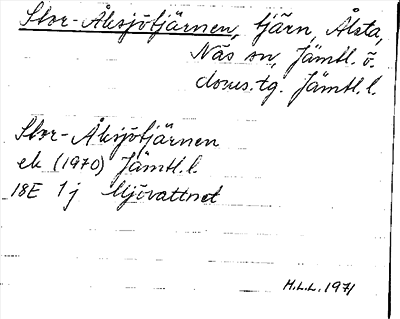 Stor-Åksjötjärnen, tjärn, Ålsta,
Näs sn, Jämtl. ö.
doms.tg. Jämtl.l.
Stor-Åksjötjärnen
ek (1970) Jämtl.l.
18E 1j Mjövattnet
M.L.L. 1971